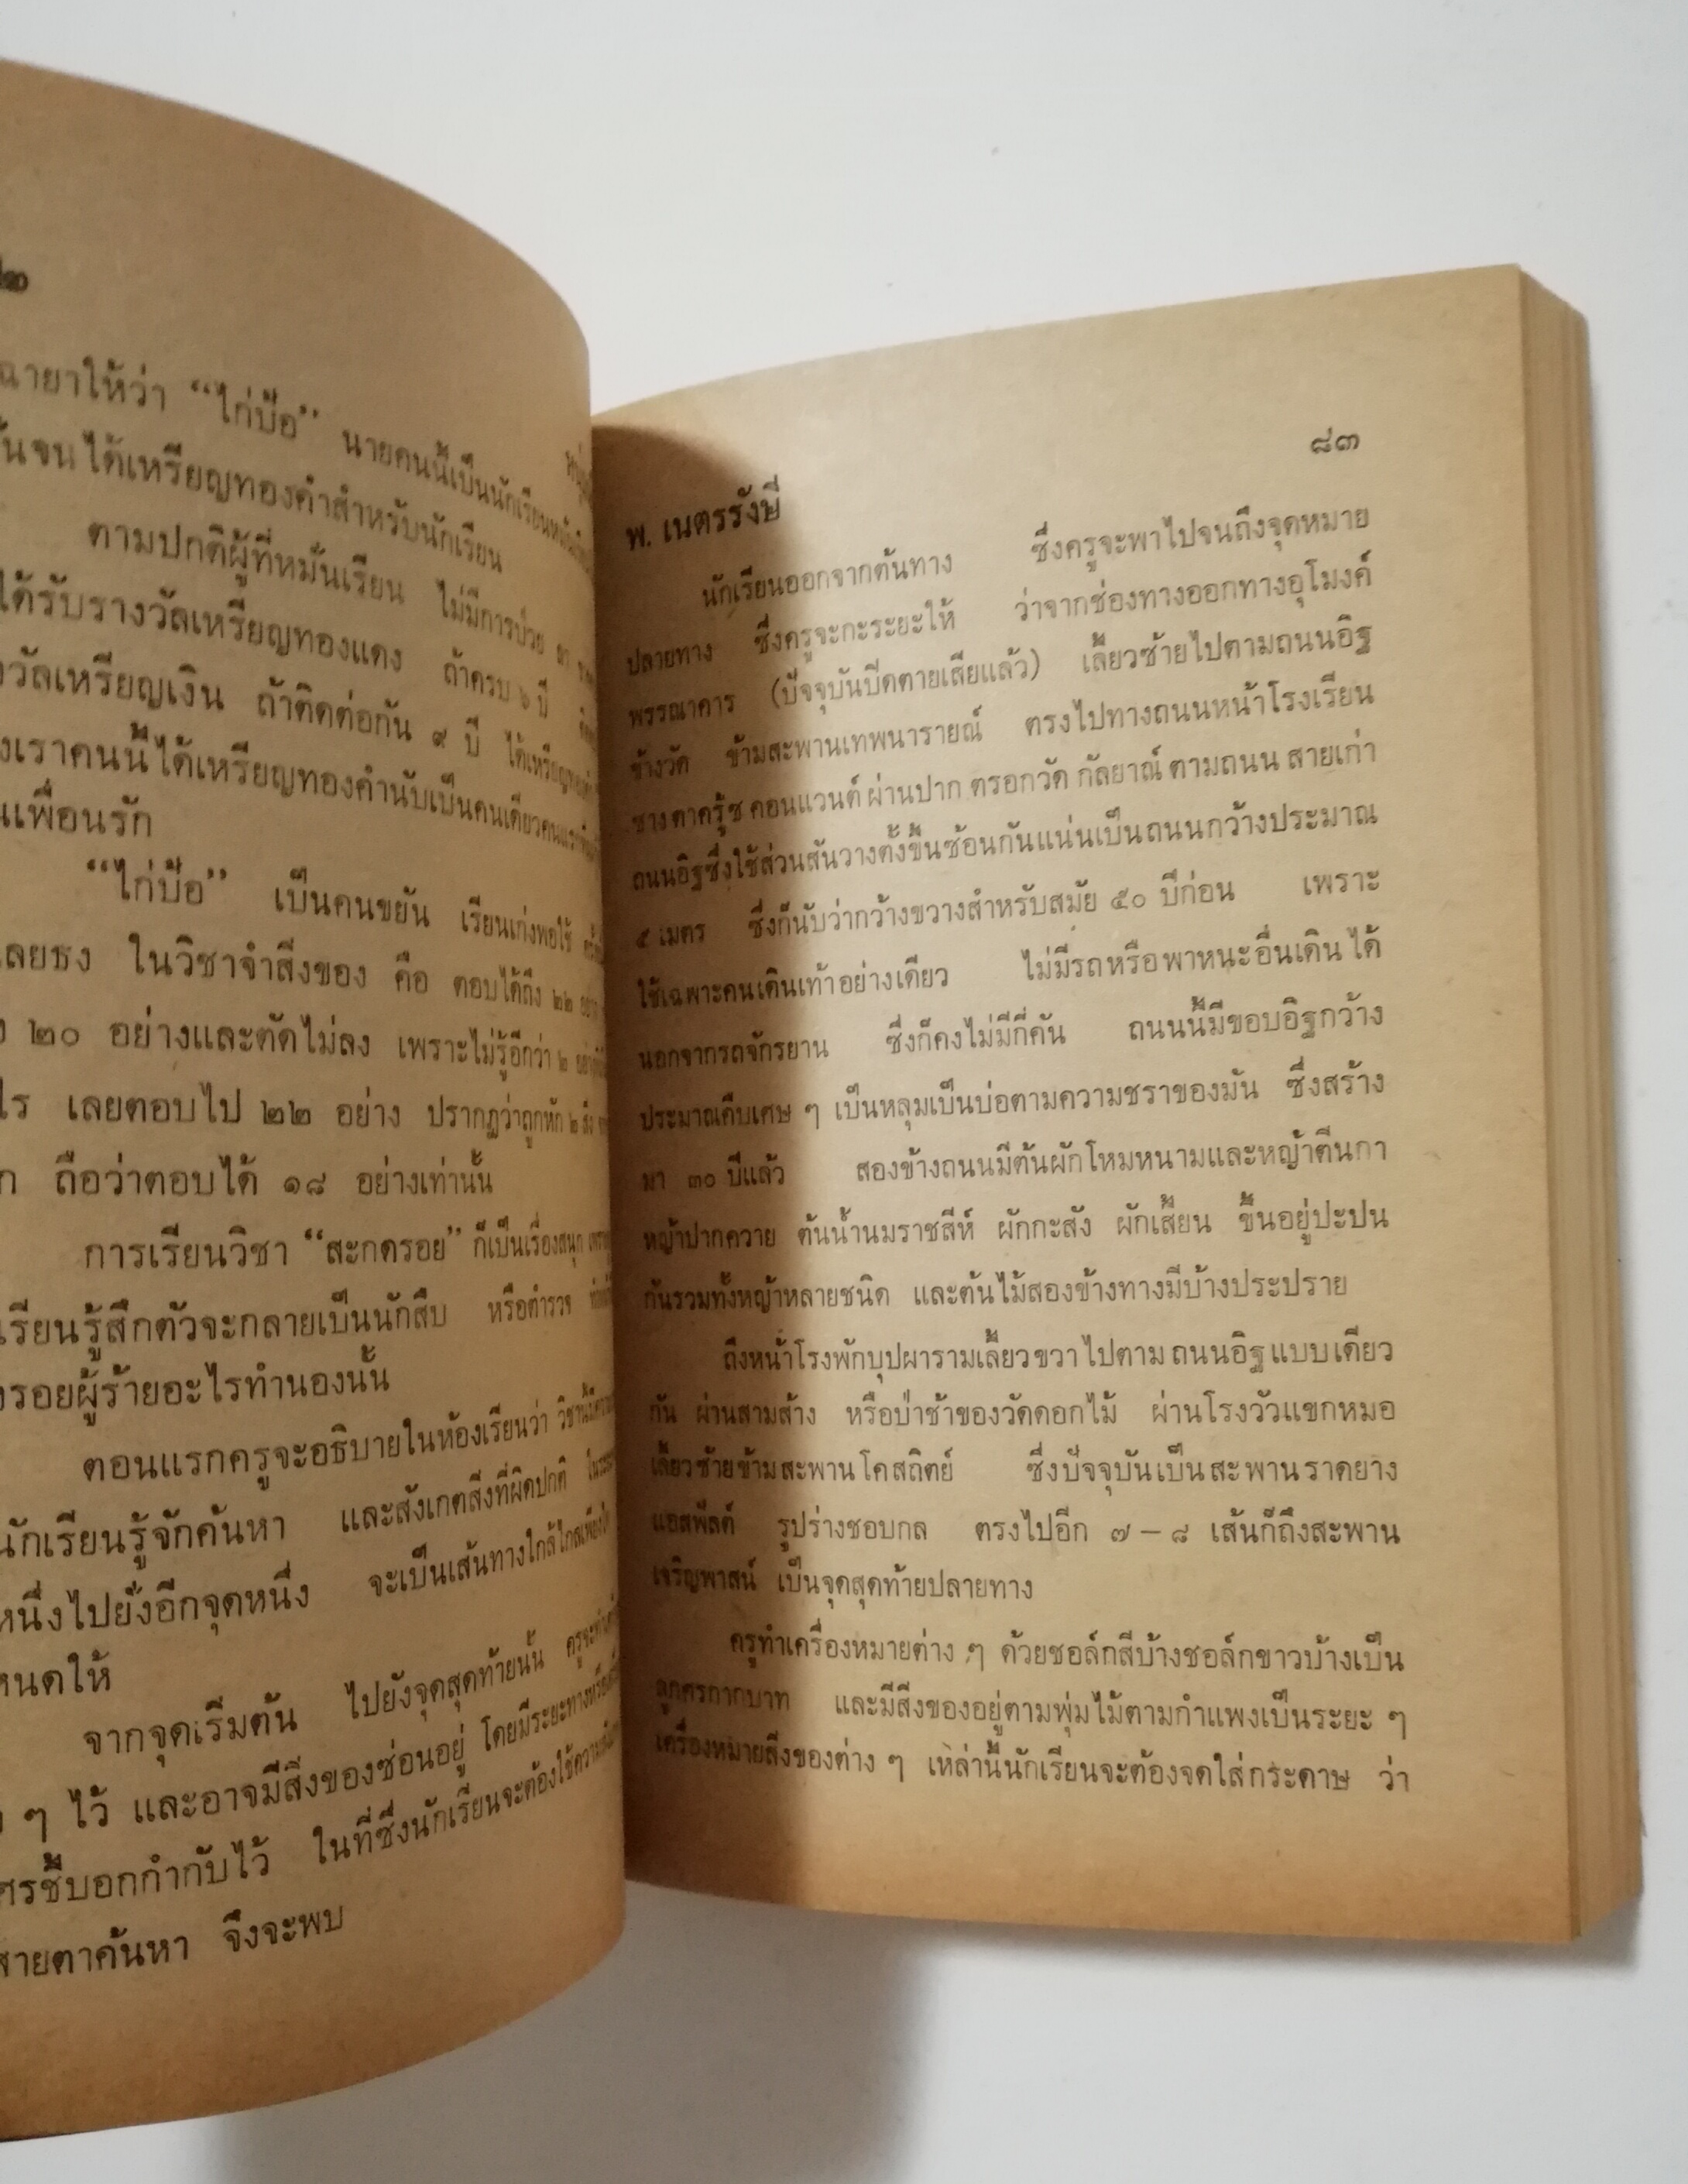 ๒
ฉายาให้ว่า “ไก่ป๊อ” นายคนนี้เป็นนักเรียน
จนได้เหรียญทองคำสำหรับนักเรียน
ตามปกติผู้ที่หมั่นเรียน ไม่มีการป่วย ลา
ได้รับรางวัลเหรียญทองแดง ถ้าครบ ๖ ปี
วัลเหรียญเงิน ถ้าติดต่อกัน ๙ ปี ได้เหรียญทอง
เราคนนี้ได้เหรียญทองคำนับเป็นคนเดียวคนแรก
เพื่อนรัก
“ไก่ป๊อ” เป็นคนขยัน เรียนเก่งพอใช้
เลยธง ในวิชาจำสิ่งของ คือ ตอบได้ถึง ๒๒
๒๐ อย่างและตัดไม่ลง เพราะไม่รู้อีกว่า ๒
ไร เลยตอบไป ๒๒ อย่าง ปรากฏว่าถูกหัก ๒ สิ่ง
ก ถือว่าตอบได้ ๑๘ อย่างเท่านั้น
การเรียนวิชา “สะกดรอย” ก็เป็นเรื่องสนุก
เรียนรู้สึกตัวจะกลายเป็นนักสืบ หรือตำรวจ
รอยผู้ร้ายอะไรทำนองนั้น
ตอนแรกครูจะอธิบายในห้องเรียนว่า วิชานี้
นักเรียนรู้จักค้นหา และสังเกตสิ่งที่ผิดปกติ
หนึ่งไปยังอีกจุดหนึ่ง จะเป็นเส้นทางใกล้ไกลเพียงใด
หนดให้
จากจุดเริ่มต้น ไปยังจุดสุดท้ายนั้น ครูจะ
ๆ ไว้ และอาจมีสิ่งของซ่อนอยู่ โดยมีระยะทาง
ศรชี้บอกกำกับไว้ ในที่ซึ่งนักเรียนจะต้องใช้ความ
สายตาค้นหา จึงจะพบ
พ. เนตรรังษี ๘๓
นักเรียนออกจากต้นทาง ซึ่งครูจะพาไปจนถึงจุดหมาย
ปลายทาง ซึ่งครูจะกะระยะให้ ว่าจากช่องทางออกทางอุโมงค์
พรรณาคาร (ปัจจุบันปิดตายเสียแล้ว) เลี้ยวซ้ายไปตามถนนอิฐ
ข้างวัด ข้ามสะพานเทพนารายณ์ ตรงไปทางถนนหน้าโรงเรียน
ซางตาครู้ซคอนแวนต์ผ่านปากตรอกวัดกัลยาณ์ตามถนนสายเก่า
ถนนอิฐซึ่งใช้ส่วนสันวางตั้งขึ้นซ้อนกันแน่นเป็นถนนกว้างประมาณ
๕ เมตร ซึ่งก็นับว่ากว้างขวางสำหรับสมัย ๕๐ ปีก่อน เพราะ
ใช้เฉพาะคนเดินเท้าอย่างเดียว ไม่มีรถหรือพาหนะอื่นเดินได้
นอกจากรถจักรยาน ซึ่งก็คงไม่มีกี่คัน ถนนนี้มีขอบอิฐกว้าง
ประมาณคืบเศษ ๆ เป็นหลุมเป็นบ่อตามความชราของมัน ซึ่งสร้าง
มา ๓๐ ปีแล้ว สองข้างถนนมีต้นผักโหมหนามและหญ้าตีนกา
หญ้าปากควาย ต้นน้ำนมราชสีห์ ผักกะสัง ผักเสี้ยน ขึ้นอยู่ปะปน
กันรวมทั้งหญ้าหลายชนิด และต้นไม้สองข้างทางมีบ้างประปราย
ถึงหน้าโรงพักบุปผารามเลี้ยวขวาไปตามถนนอิฐแบบเดียว
กัน ผ่านสามส้าง หรือป่าช้าของวัดดอกไม้ ผ่านโรงวัวแขกหมอ
เลี้ยวซ้ายข้ามสะพานโคสถิตย์ ซึ่งปัจจุบันเป็นสะพานราดยาง
แอสฟัลต์ รูปร่างชอบกล ตรงไปอีก ๗ – ๘ เส้นก็ถึงสะพาน
เจริญพาสน์ เป็นจุดสุดท้ายปลายทาง
ครูทำเครื่องหมายต่าง ๆ ด้วยชอล์กสีบ้างชอล์กขาวบ้างเป็น
ลูกศรกากบาท และมีสิ่งของอยู่ตามพุ่มไม้ตามกำแพงเป็นระยะ ๆ
เครื่องหมายสิ่งของต่าง ๆ เหล่านี้นักเรียนจะต้องจดใส่กระดาษ ว่า